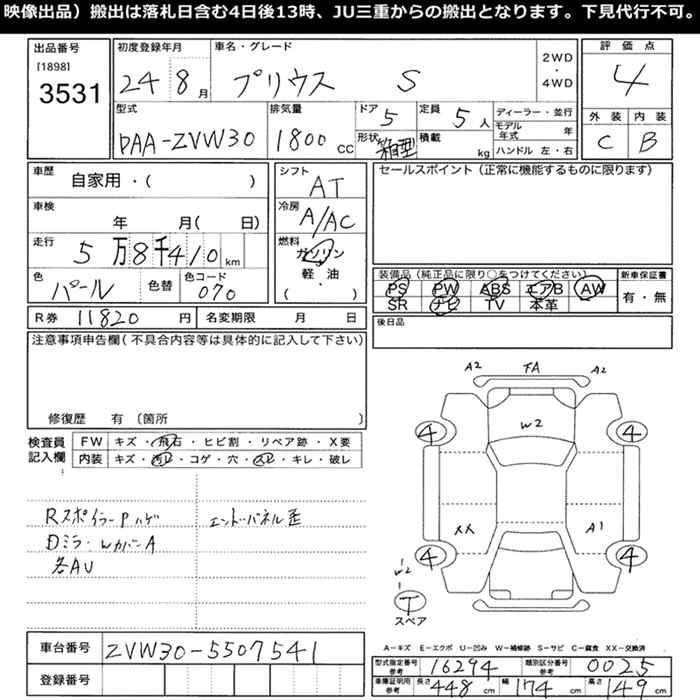 映像出品）搬出は落札日含む4日後13時、JU三重からの搬出となります。下見代行不可。
出品番号
[1898]
3531
初度登録年月
24 8月
車名・グレード
プリウス S
2WD
・
4WD
評価点
4
外装 内装
C B
型式
DAA-ZVW30
排気量
1800 CC
ドア 5
形状 箱型
定員 5人
積載 kg
ディーラー・並行
モデル年式 年
ハンドル 左・右
車歴
自家用・( )
車検
年 月( 日)
走行
5万8千410km
色
パール
色替
色コード
070
シフト
AT
冷房
A/AC
燃料
ガソリン
軽・油
( ・ )
セールスポイント（正常に機能するものに限ります）
装備品（純正品に限り○をつけてください）
PS PW ABS エアB AW
SR ナビ TV 本革
新車保証書
有・無
後日品
R券 11820円
名変期限 月 日
注意事項申告欄(不具合内容等は具体的に記入して下さい)
修復歴 有 〔箇所 〕
検査員記入欄
FW キズ・飛石・ヒビ割・リペア跡・X要
内装 キズ・汚レ・コゲ・穴・スレ・キレ・破レ
RスポイラーPハゲ
Dミラー WカバーA
各AU
エンドパネル歪
A2 FA A2
W2
4 4
XX A1
4 4
W2
T
スペア
A－キズ E－エクボ U－凹み W－補修跡 S－サビ C－腐食 XX－交換済
車台番号 ZVW30-5507541
登録番号
型式指定番号 参考 16294
類別区分番号 参考 0025
車庫証明用 参考 長さ 448cm 幅 174cm 高さ 149cm